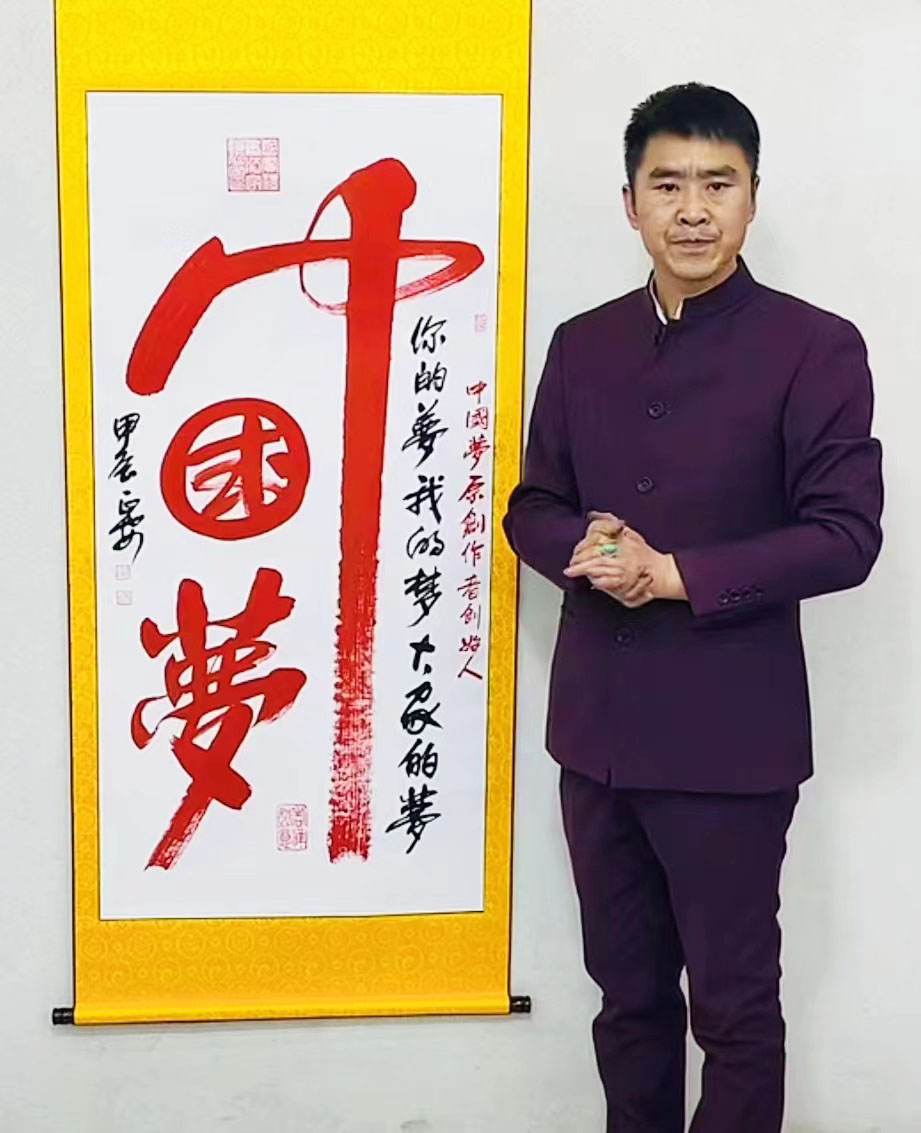 中國夢原創作者創始人
你的夢我的梦大家的夢
中
國
夢
甲辰